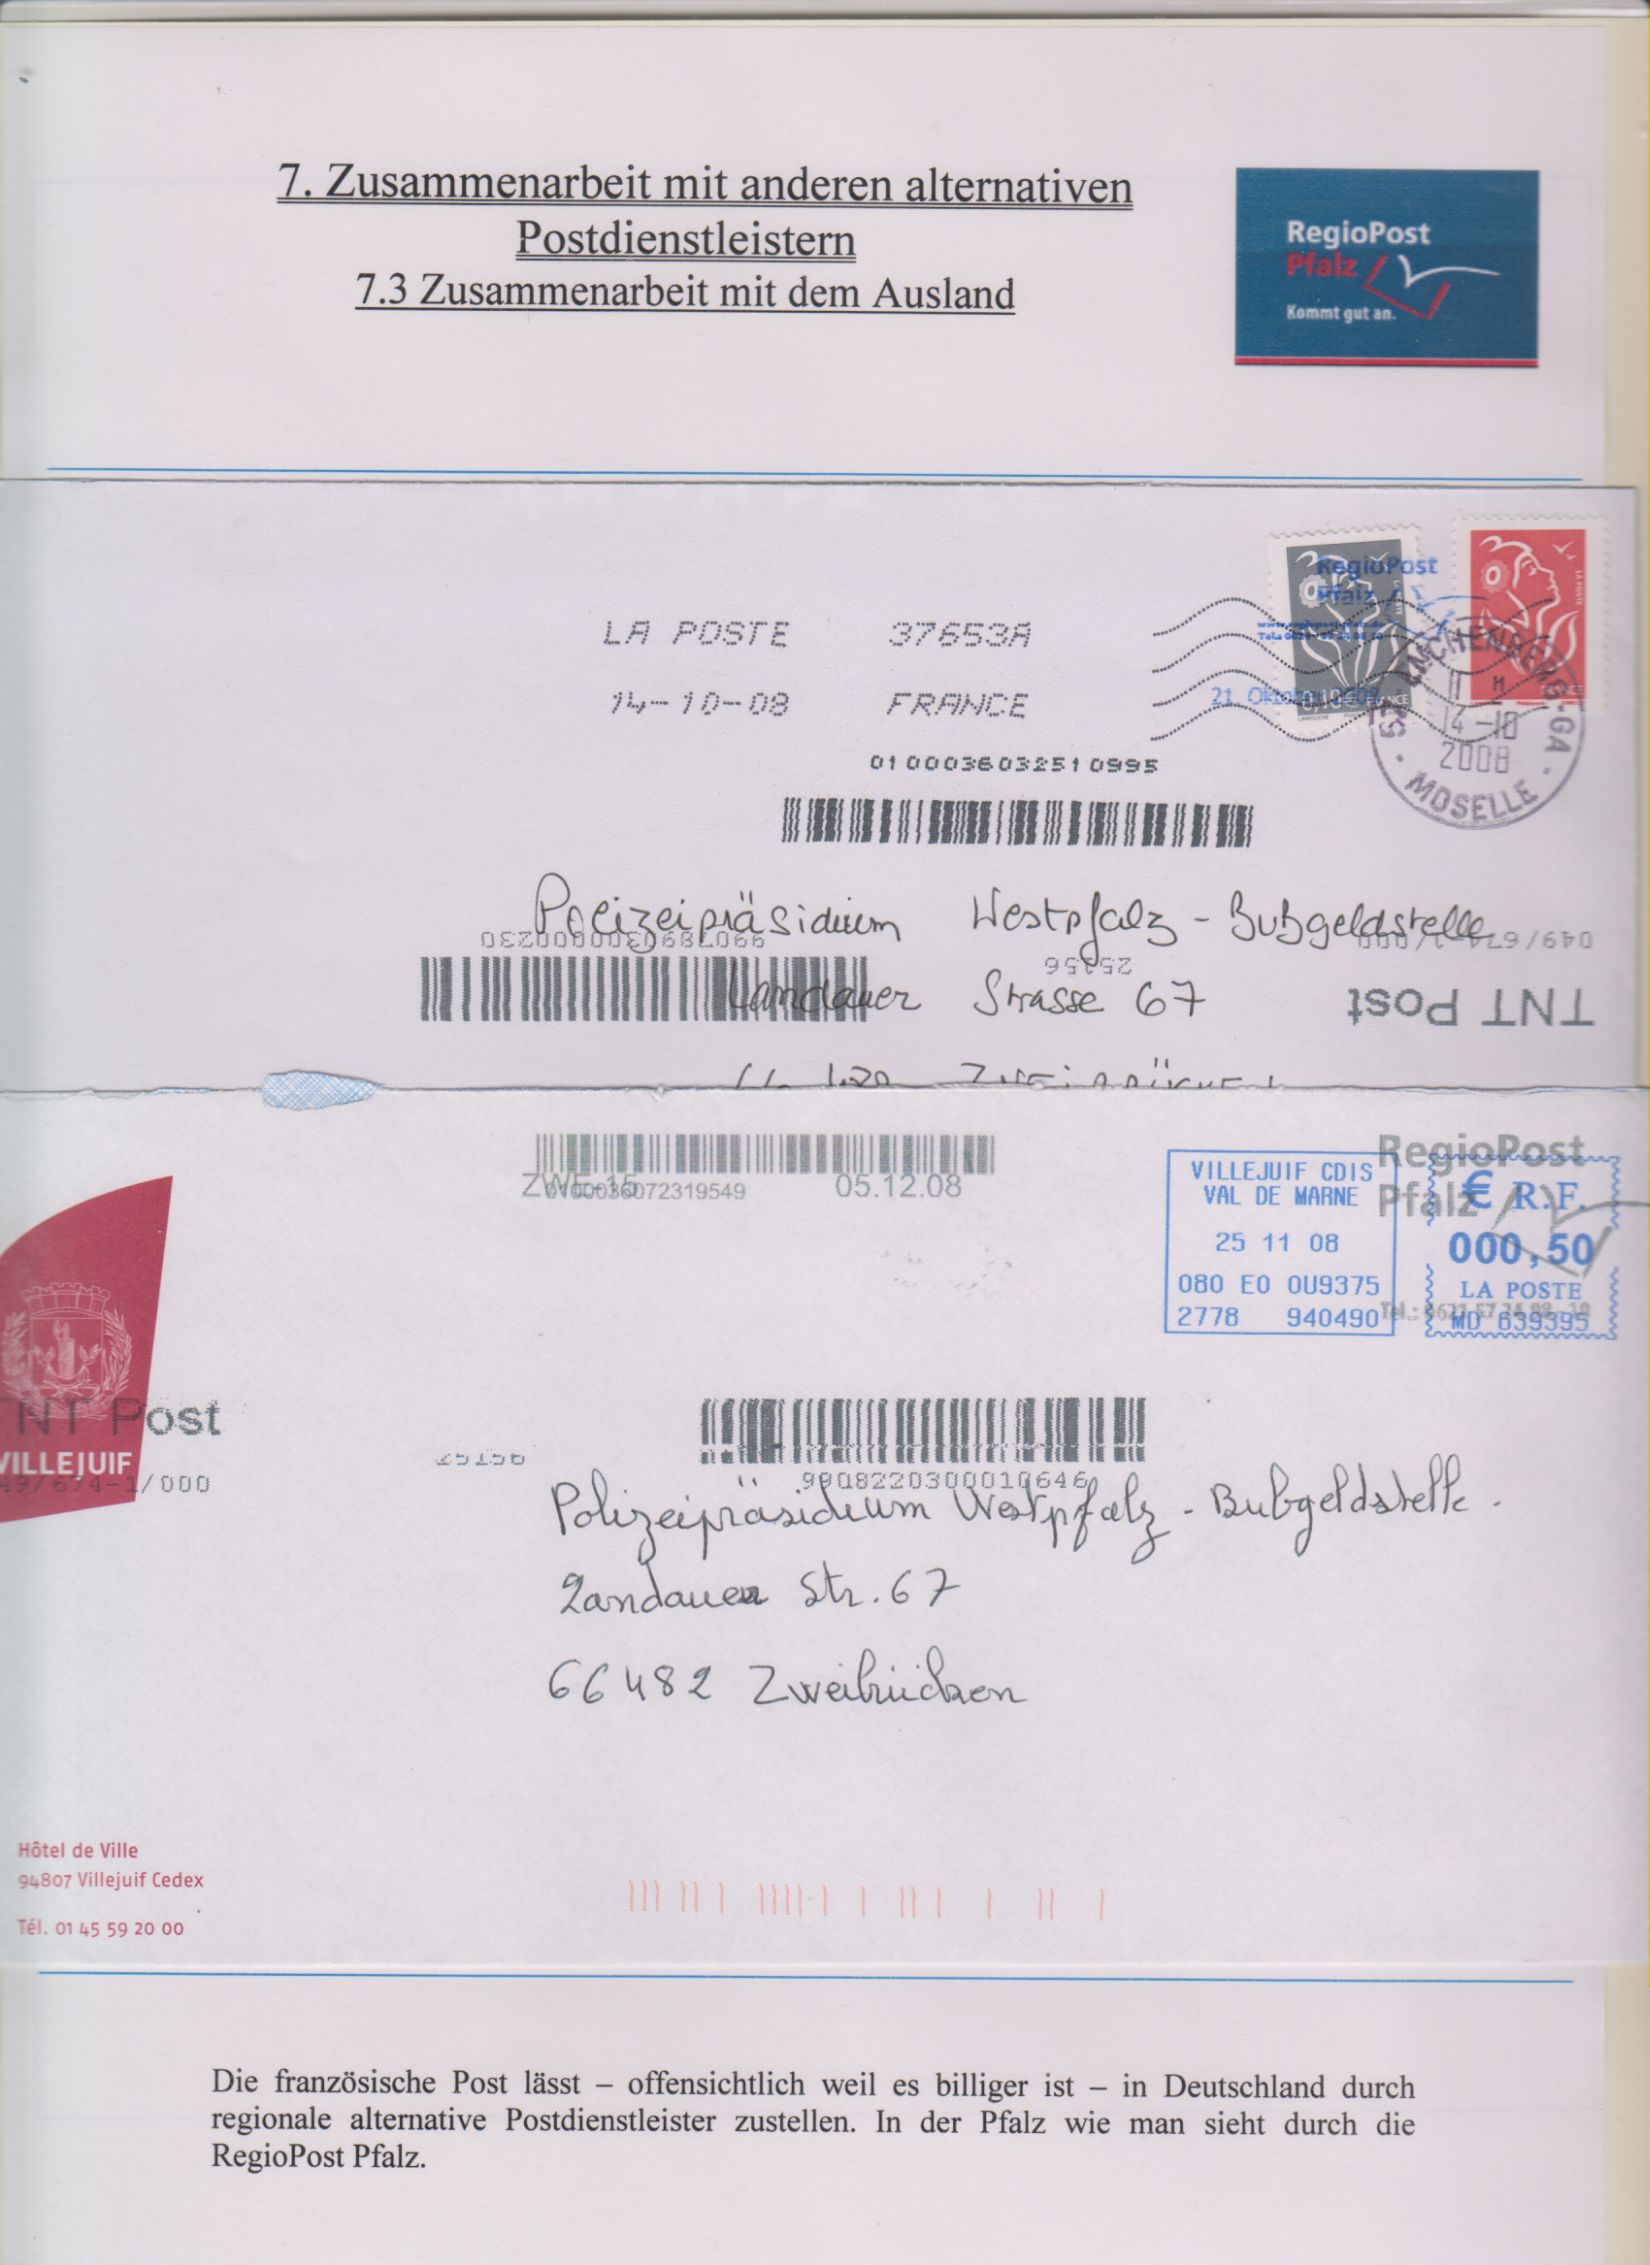 7. Zusammenarbeit mit anderen alternativen
Postdienstleistern
7.3 Zusammenarbeit mit dem Ausland
RegioPost
Pfalz
Kommt gut an.
RegioPost
Pfalz
LA POSTE 37653A
14-10-08 FRANCE
21. Oktober
14-10
2008
MOSELLE
0100036032510995
Polizeipräsidium Westpfalz - Bußgeldstelle
990789030000230
25156
Landauer Strasse 67
TNT Post
ZWE-15
0100036072319549
05.12.08
VILLEJUIF CDIS
VAL DE MARNE
25 11 08
080 E0 0U9375
2778 940490
RegioPost
Pfalz
€ R.F.
000,50
LA POSTE
MD 639395
TNT Post
VILLEJUIF
49/674-1/000
25156
9908220300010646
Polizeipräsidium Westpfalz - Bußgeldstelle.
Landauer Str. 67
66482 Zweibrücken
Hôtel de Ville
94807 Villejuif Cedex
Tél. 01 45 59 20 00
Die französische Post lässt – offensichtlich weil es billiger ist – in Deutschland durch
regionale alternative Postdienstleister zustellen. In der Pfalz wie man sieht durch die
RegioPost Pfalz.